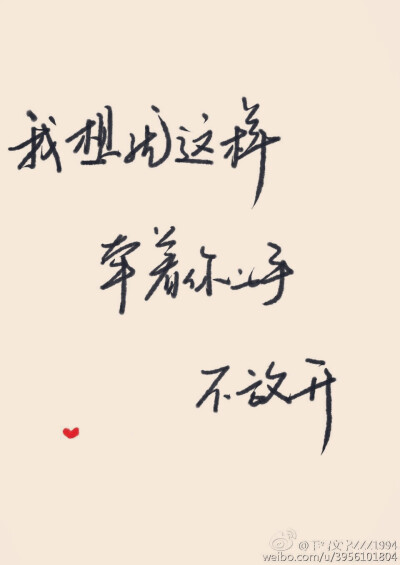 我想就这样
牵着你的手
不放开
weibo.com/u/3956101804